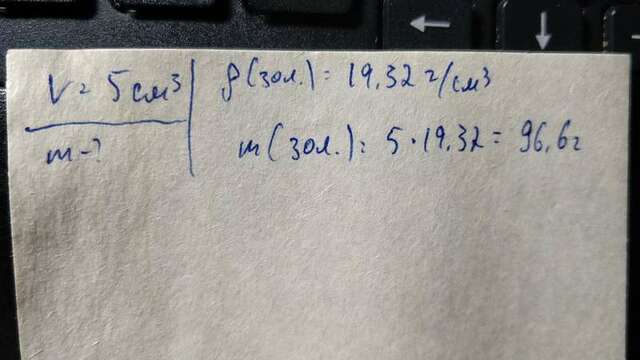 V = 5 см³
m - ?
ρ(зол.) = 19,32 г/см³
m(зол.) = 5 · 19,32 = 96,6 г